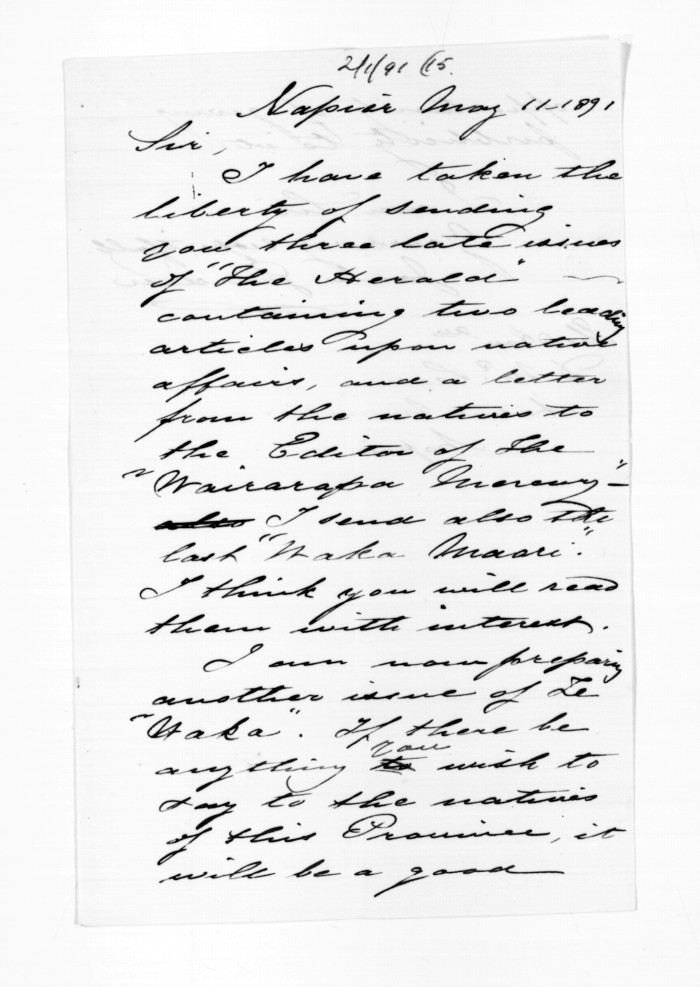 2/1/91 (15.
Napier May 11-1891
Sir,
I have taken the
liberty of sending
you three late issues
of "The Herald"
containing two leading
articles upon native
affairs, and a letter
from the natives to
the Editor of the
"Wairarapa Mercury" -
also I send also the
last "Waka Maori".
I think you will read
them with interest.
I am now preparing
another issue of Te
"Waka". If there be
you
anything to wish to
say to the natives
of this Province, it
will be a good